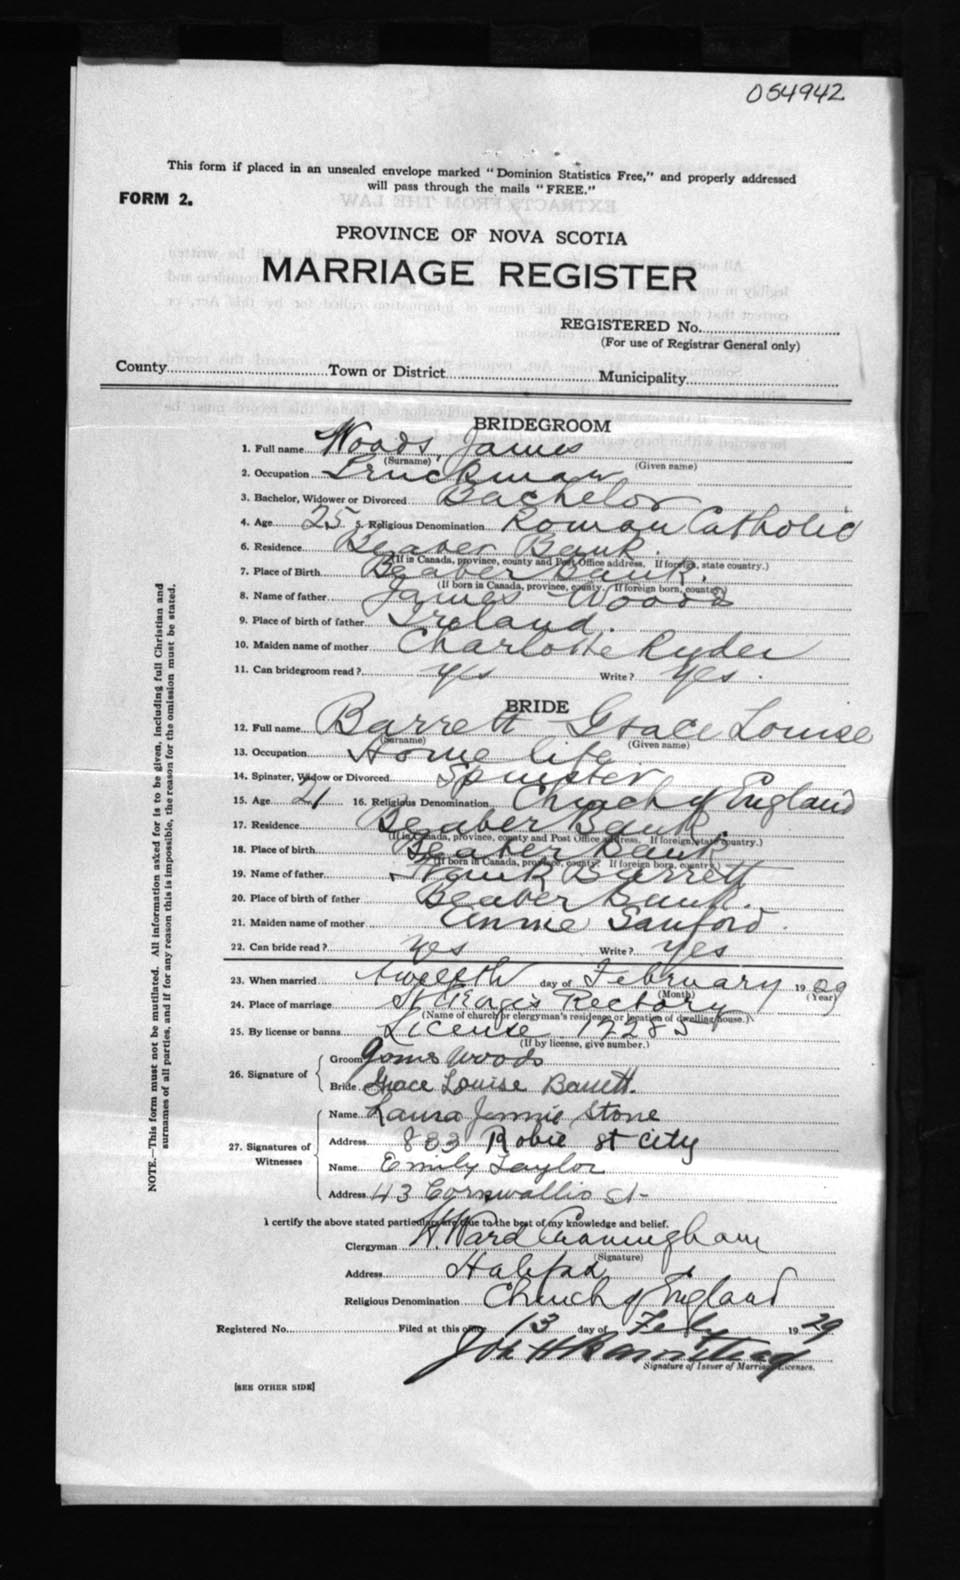 054942
This form if placed in an unsealed envelope marked "Dominion Statistics Free," and properly addressed
will pass through the mails "FREE."
FORM 2.
PROVINCE OF NOVA SCOTIA
MARRIAGE REGISTER
REGISTERED No.
(For use of Registrar General only)
County Town or District Municipality
BRIDEGROOM
1. Full name Woods, James
(Surname) (Given name)
2. Occupation Truckman
3. Bachelor, Widower or Divorced Bachelor
4. Age 25 5. Religious Denomination Roman Catholic
6. Residence Beaver Bank.
(If in Canada, province, county and Post Office address. If foreign, state country.)
7. Place of Birth Beaver Bank.
(If born in Canada, province, county. If foreign born, country.)
8. Name of father James Woods
9. Place of birth of father Ireland.
10. Maiden name of mother Charlotte Ryder
11. Can bridegroom read? yes Write? yes.
BRIDE
12. Full name Barrett Grace Louise
(Surname) (Given name)
13. Occupation Home life
14. Spinster, Widow or Divorced Spinster
15. Age 21 16. Religious Denomination Church of England
17. Residence Beaver Bank.
(If in Canada, province, county and Post Office address. If foreign, state country.)
18. Place of birth Beaver Bank
(If born in Canada, province, county. If foreign born, country.)
19. Name of father Barrett
20. Place of birth of father Beaver Bank.
21. Maiden name of mother Annie Sanford.
22. Can bride read? yes Write? yes
23. When married twelfth day of February 1929
(Month) (Year)
24. Place of marriage Rectory
(Name of church or clergyman's residence or location of dwelling house.)
25. By license or banns License 12285
(If by license, give number.)
26. Signature of
Groom James Woods
Bride Grace Louise Barrett.
27. Signatures of Witnesses
Name Laura Jennie Stone
Address 883 Robie St City
Name Emily Taylor
Address 43 Cornwallis St-
I certify the above stated particulars are true to the best of my knowledge and belief.
Clergyman H. Ward Cunningham
(Signature)
Address Halifax
Religious Denomination Church of England
Registered No. Filed at this office 13 day of Feby 1929
Signature of Issuer of Marriage Licenses.
[SEE OTHER SIDE]
NOTE.—This form must not be mutilated. All information asked for is to be given, including full Christian and
surnames of all parties, and if for any reason this is impossible, the reason for the omission must be stated.